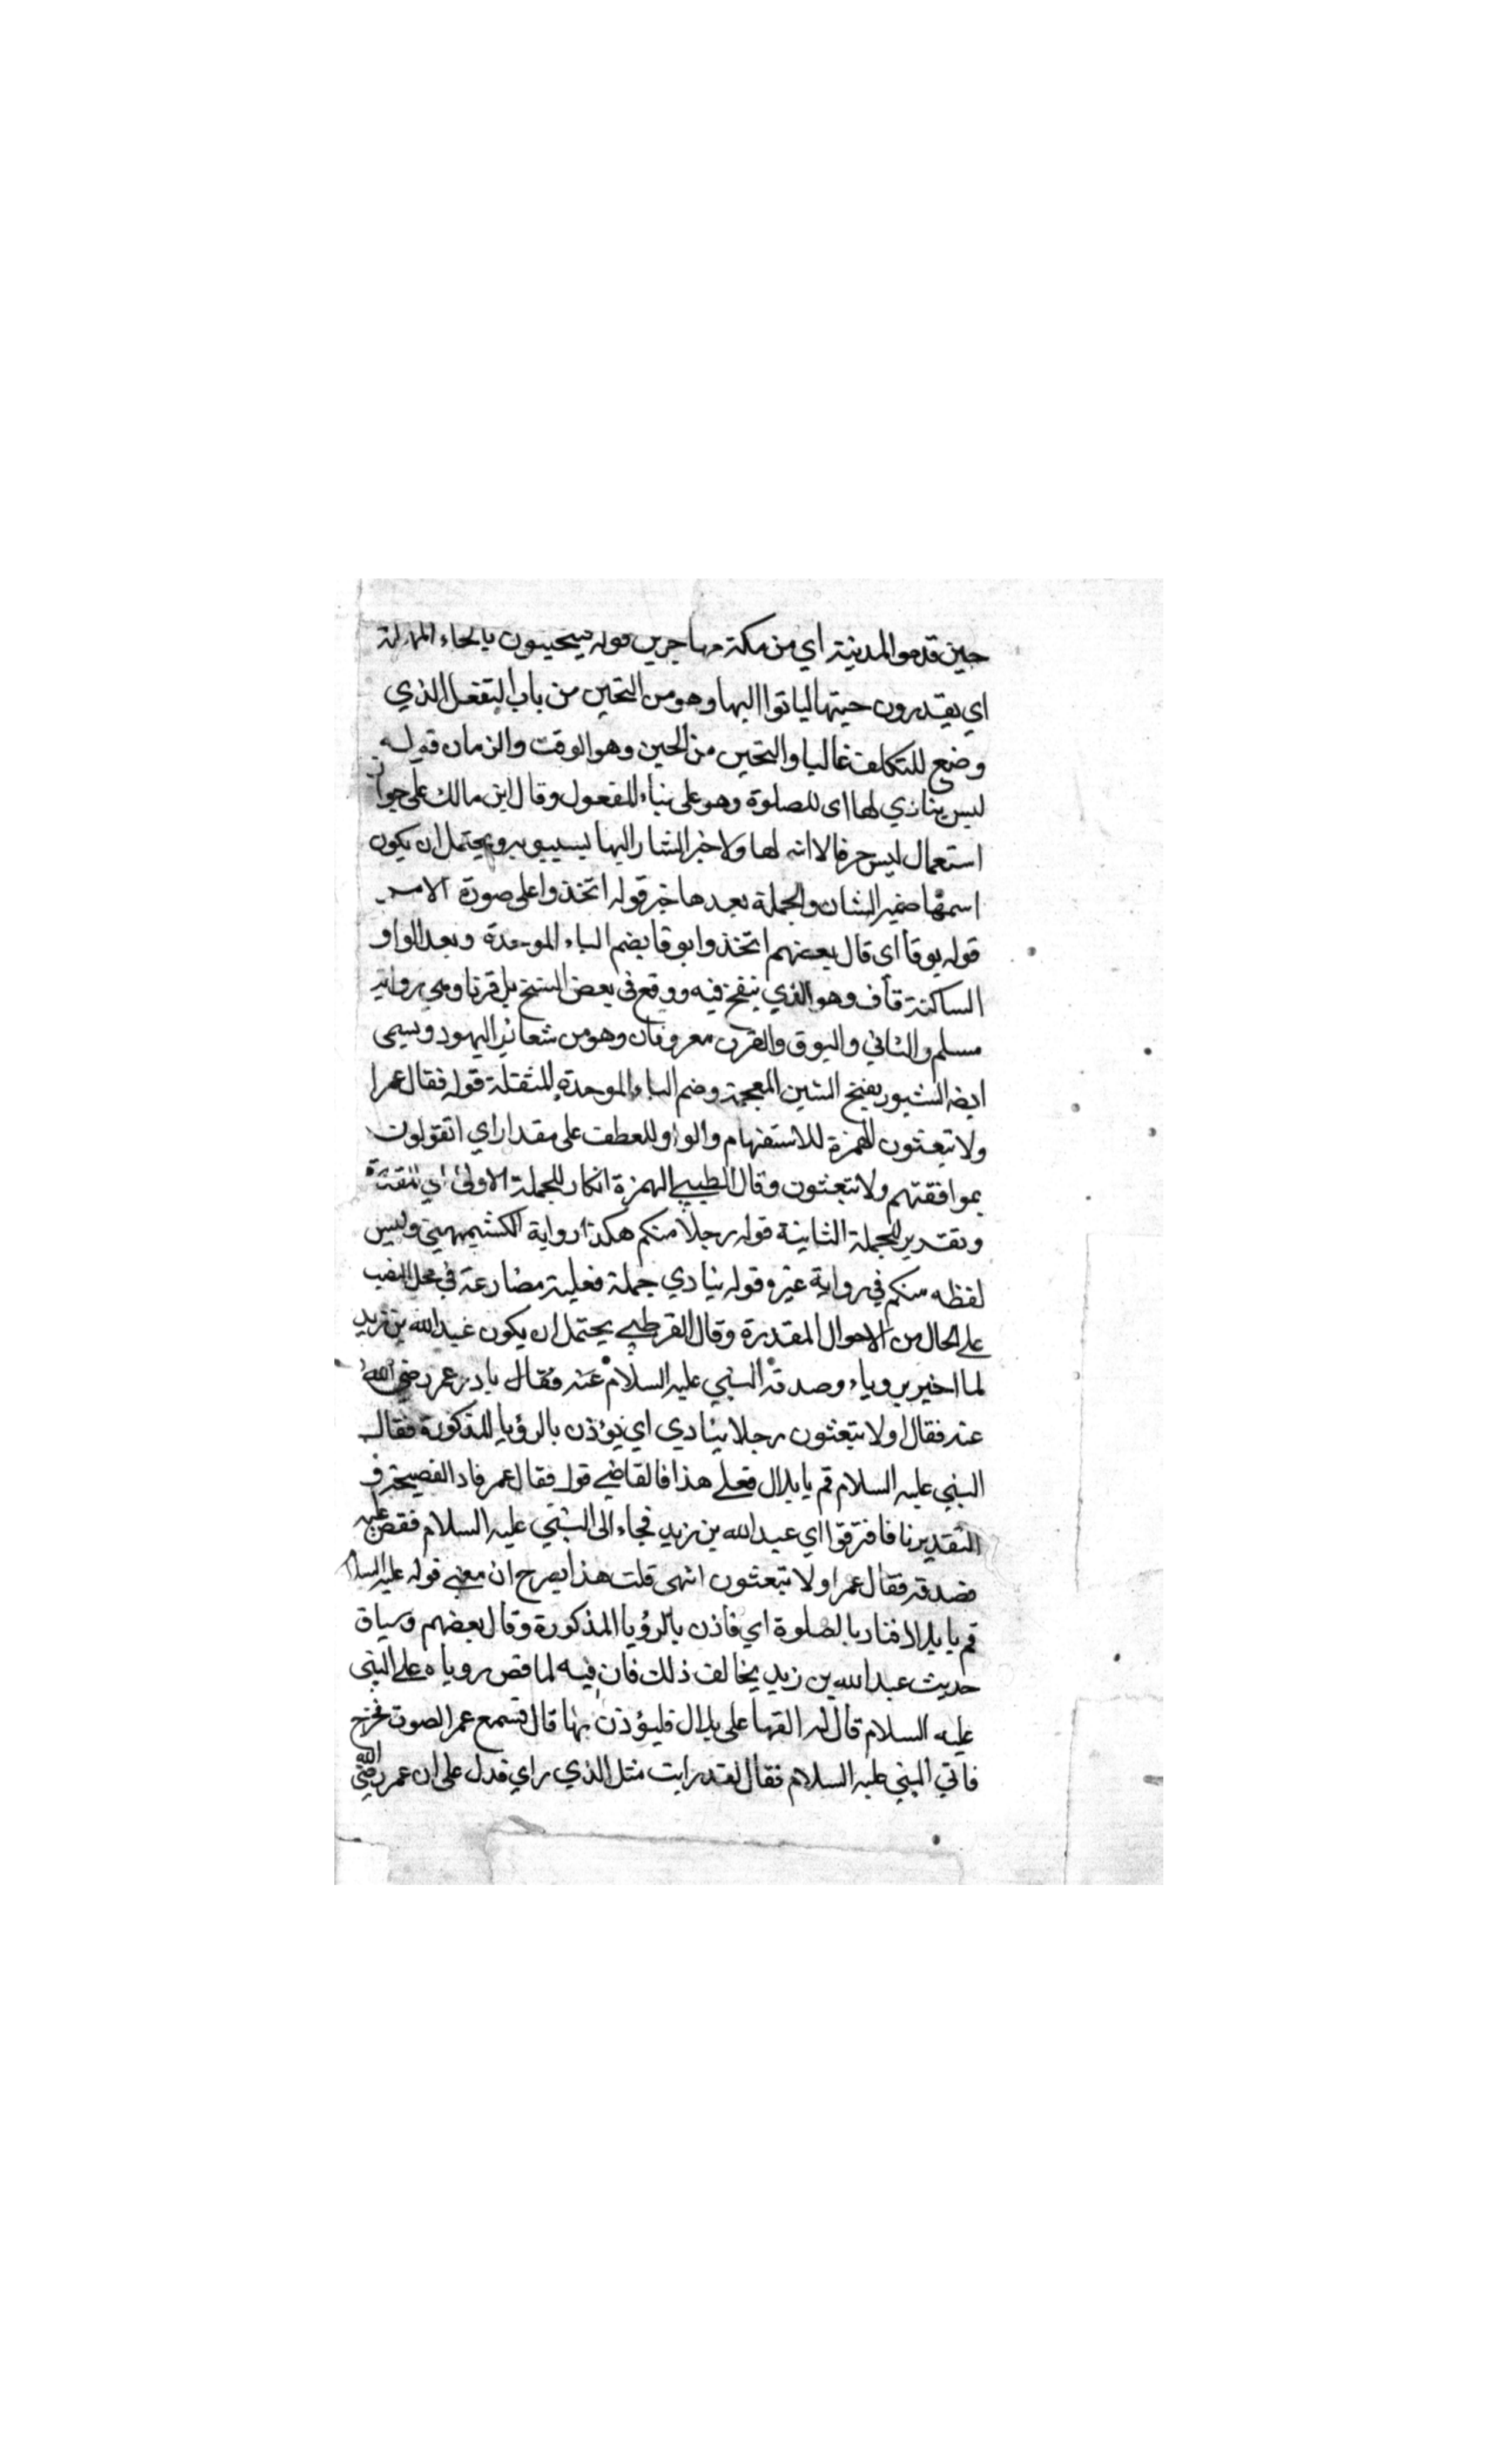 حين قدموا المدينة اي من مكة مهاجرين قوله فيتحينون بالحاء المهملة
اي يقدرون حينها لياتوا اليها وهو من التحين من باب التفعل الذي
وضع للتكلف غالبا والتحين من الحين وهو الوقت والزمان قوله
ليس ينادي لها اى للصلوة وهو على بناء المفعول وقال ابن مالك على جواز
استعمال ليس حرفا لا اسم لها ولا خبر اشار اليها سيبويه ويحتمل ان يكون
اسمها ضمير الشان والجملة بعدها خبر قوله اتخذوا على صورة الامر
قوله بوقا اى قال بعضهم اتخذوا بوقا بضم الباء الموحدة وبعد الواو
الساكنة قاف وهو الذي ينفخ فيه ووقع فى بعض النسخ بل قرنا وهي رواية
مسلم والنساني والبوق والقرن معروفان وهو من شعائر اليهود ويسمى
ايضا الشبور بفتح الشين المعجمة وضم الباء الموحدة المثقلة قوله فقال عمر ا
ولا تبعثون الهمزة للاستفهام والواو للعطف على مقدار اي اتقولون
بموافقتهم ولا تبعثون وقال الطيبي الهمزة انكار للجملة الاولى اي المقدرة
وتقدير للجملة الثانية قوله رجلا منكم هكذا رواية الكشيمهيني وليس
لفظه منكم في رواية غيره وقوله ينادي جملة فعلية مضارعة في محل النصب
على الحال من الاحوال المقدرة وقال القرطبي يحتمل ان يكون عبد الله بن زيد
لما اخبر بروياء وصدقه النبي عليه السلام عنه فقال بادر عمر رضي الله
عنه فقال اولا تبعثون رجلا ينادي اي يؤذن بالرؤيا المذكورة فقال
النبي عليه السلام قم يا بلال فعلى هذا فالقاضي قوله فقال عمر فاد الفصيحة و
التقدير نا فافترقوا اي عبد الله بن زيد فجاء الى النبي عليه السلام فقص عليه
فصدقه فقال عمر اولا تبعثون انتهى قلت هذا يصرح ان معنى قوله عليه السلام
قم يا بلال فناد بالصلوة اي فاذن بالرؤيا المذكورة وقال بعضهم وسياق
حديث عبد الله بن زيد يخالف ذلك فان فيه لما قص روياه على النبى
عليه السلام قال له القها على بلال فليؤذن بها قال فسمع عمر الصوت فخرج
فاتي النبي عليه السلام فقال لقد رايت مثل الذي راي فدل على ان عمر رضي الله